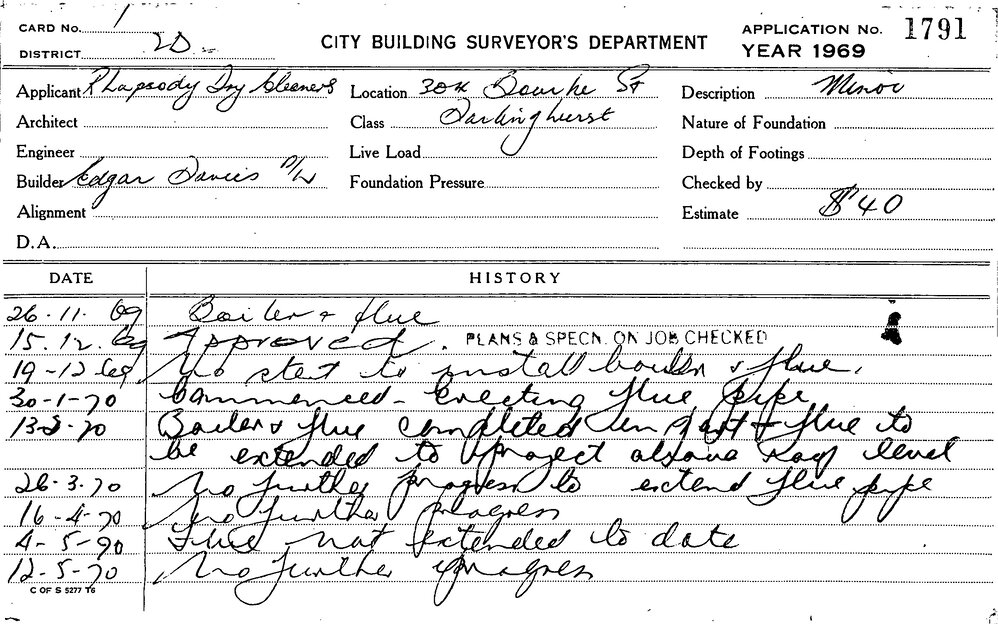 CARD No. 1
DISTRICT 2D
CITY BUILDING SURVEYOR'S DEPARTMENT
APPLICATION No. 1791
YEAR 1969
Applicant Rhapsody Dry Cleaners
Location 304 Bourke St
Description Minor
Architect
Class Darlinghurst
Nature of Foundation
Engineer
Live Load
Depth of Footings
Builder Edgar Davies P/L
Foundation Pressure
Checked by
Alignment
Estimate $40
D.A.
DATE HISTORY
26-11-69 Boiler & flue
15.12.69 Approved. PLANS & SPECN. ON JOB CHECKED
19-12-69 No start to install boiler & flue.
30-1-70 Commenced - Erecting flue pipe
13-3-70 Boiler & flue completed in part & flue to
be extended to project above roof level
26-3-70 No further progress to extend flue pipe
16-4-70 No further progress
4-5-70 Flue not extended to date
12-5-70 No further progress
C OF S 5277 T6